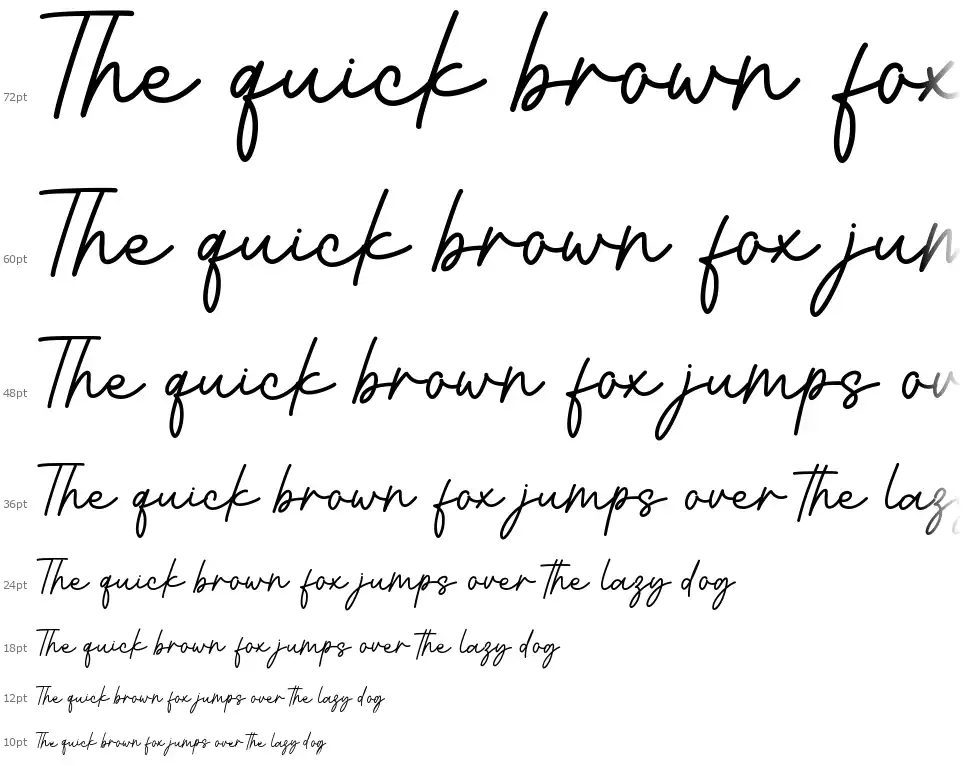 72pt The quick brown fox
60pt The quick brown fox jun
48pt The quick brown fox jumps ov
36pt The quick brown fox jumps over the laz
24pt The quick brown fox jumps over the lazy dog
18pt The quick brown fox jumps over the lazy dog
12pt The quick brown fox jumps over the lazy dog
10pt The quick brown fox jumps over the lazy dog